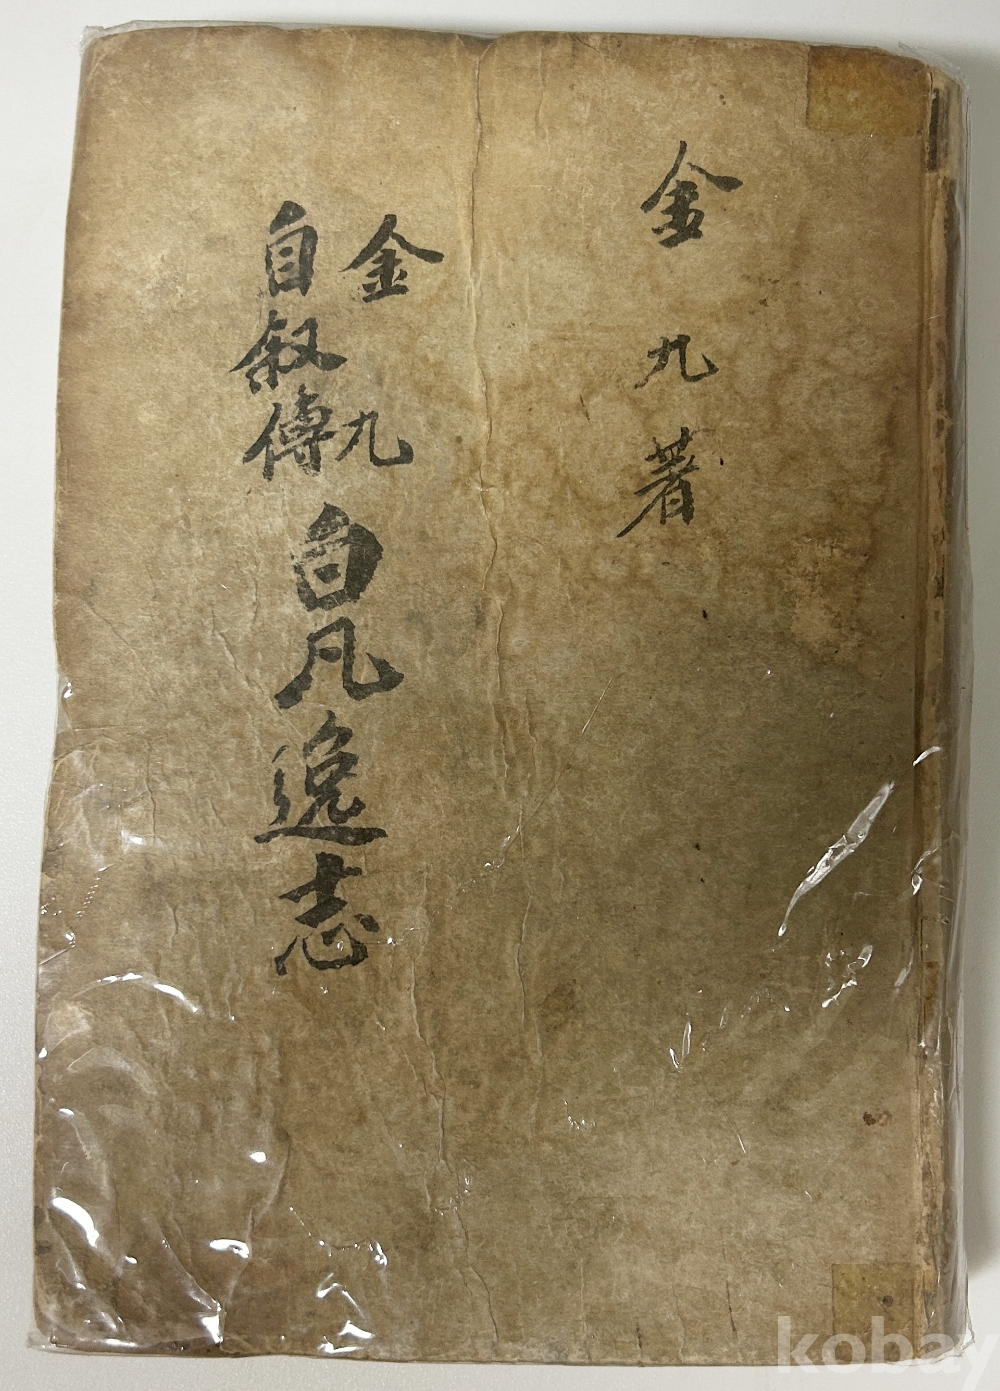 金九著
金九
自叙傳
白凡逸志
kobay